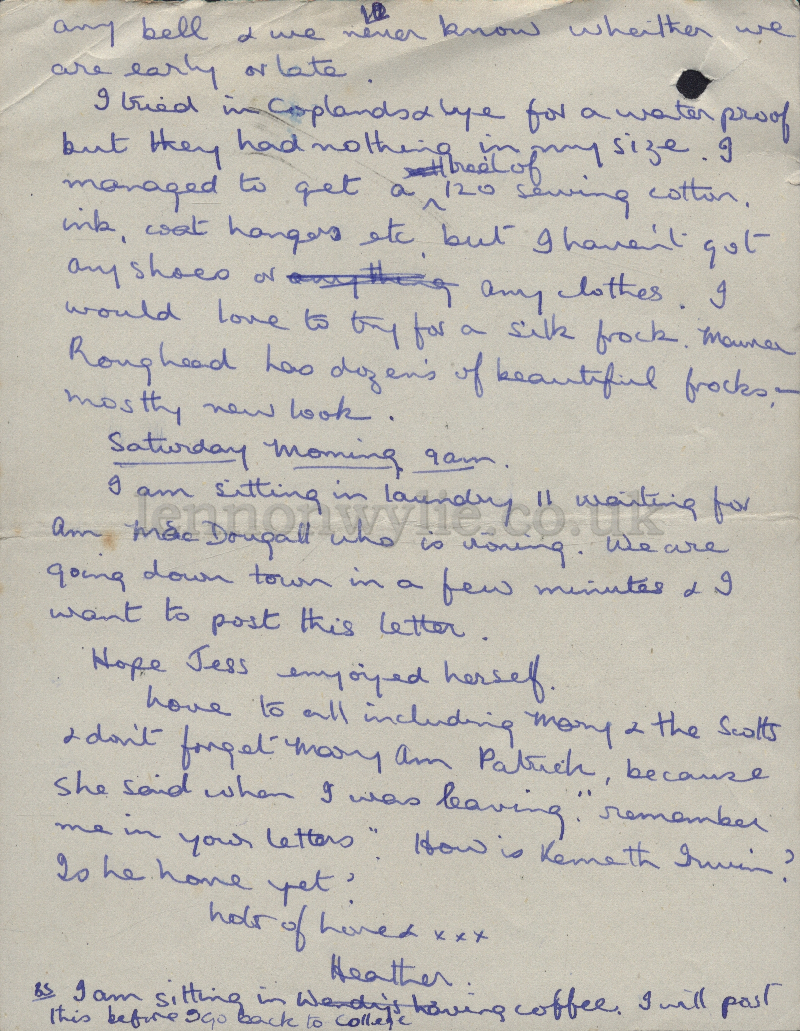 12
any bell & we never know wheither we
are early or late.
I tried in Coplands & Lye for a waterproof
but they had nothing in my size. I
managed to get a reel of 120 sewing cotton,
ink, coat hangers etc. but I haven't got
any shoes or anything any clothes. I
would love to try for a silk frock. Maureen
Roughead has dozens of beautiful frocks, –
mostly new look.
Saturday Morning 9am.
I am sitting in laundry 11 waiting for
Ann MacDougall who is ironing. We are
going down town in a few minutes & I
want to post this letter.
Hope Jess enjoyed herself.
Love to all including Mary & the Scotts
& don't forget Mary Ann Patrick, because
she said when I was leaving. "remember
me in your letters". How is Kenneth Irwin?
Is he home yet?
Lots of Love & xxx
Heather.
PS I am sitting in Wendy's having coffee. I will post
this before I go back to college
lennonwylie.co.uk